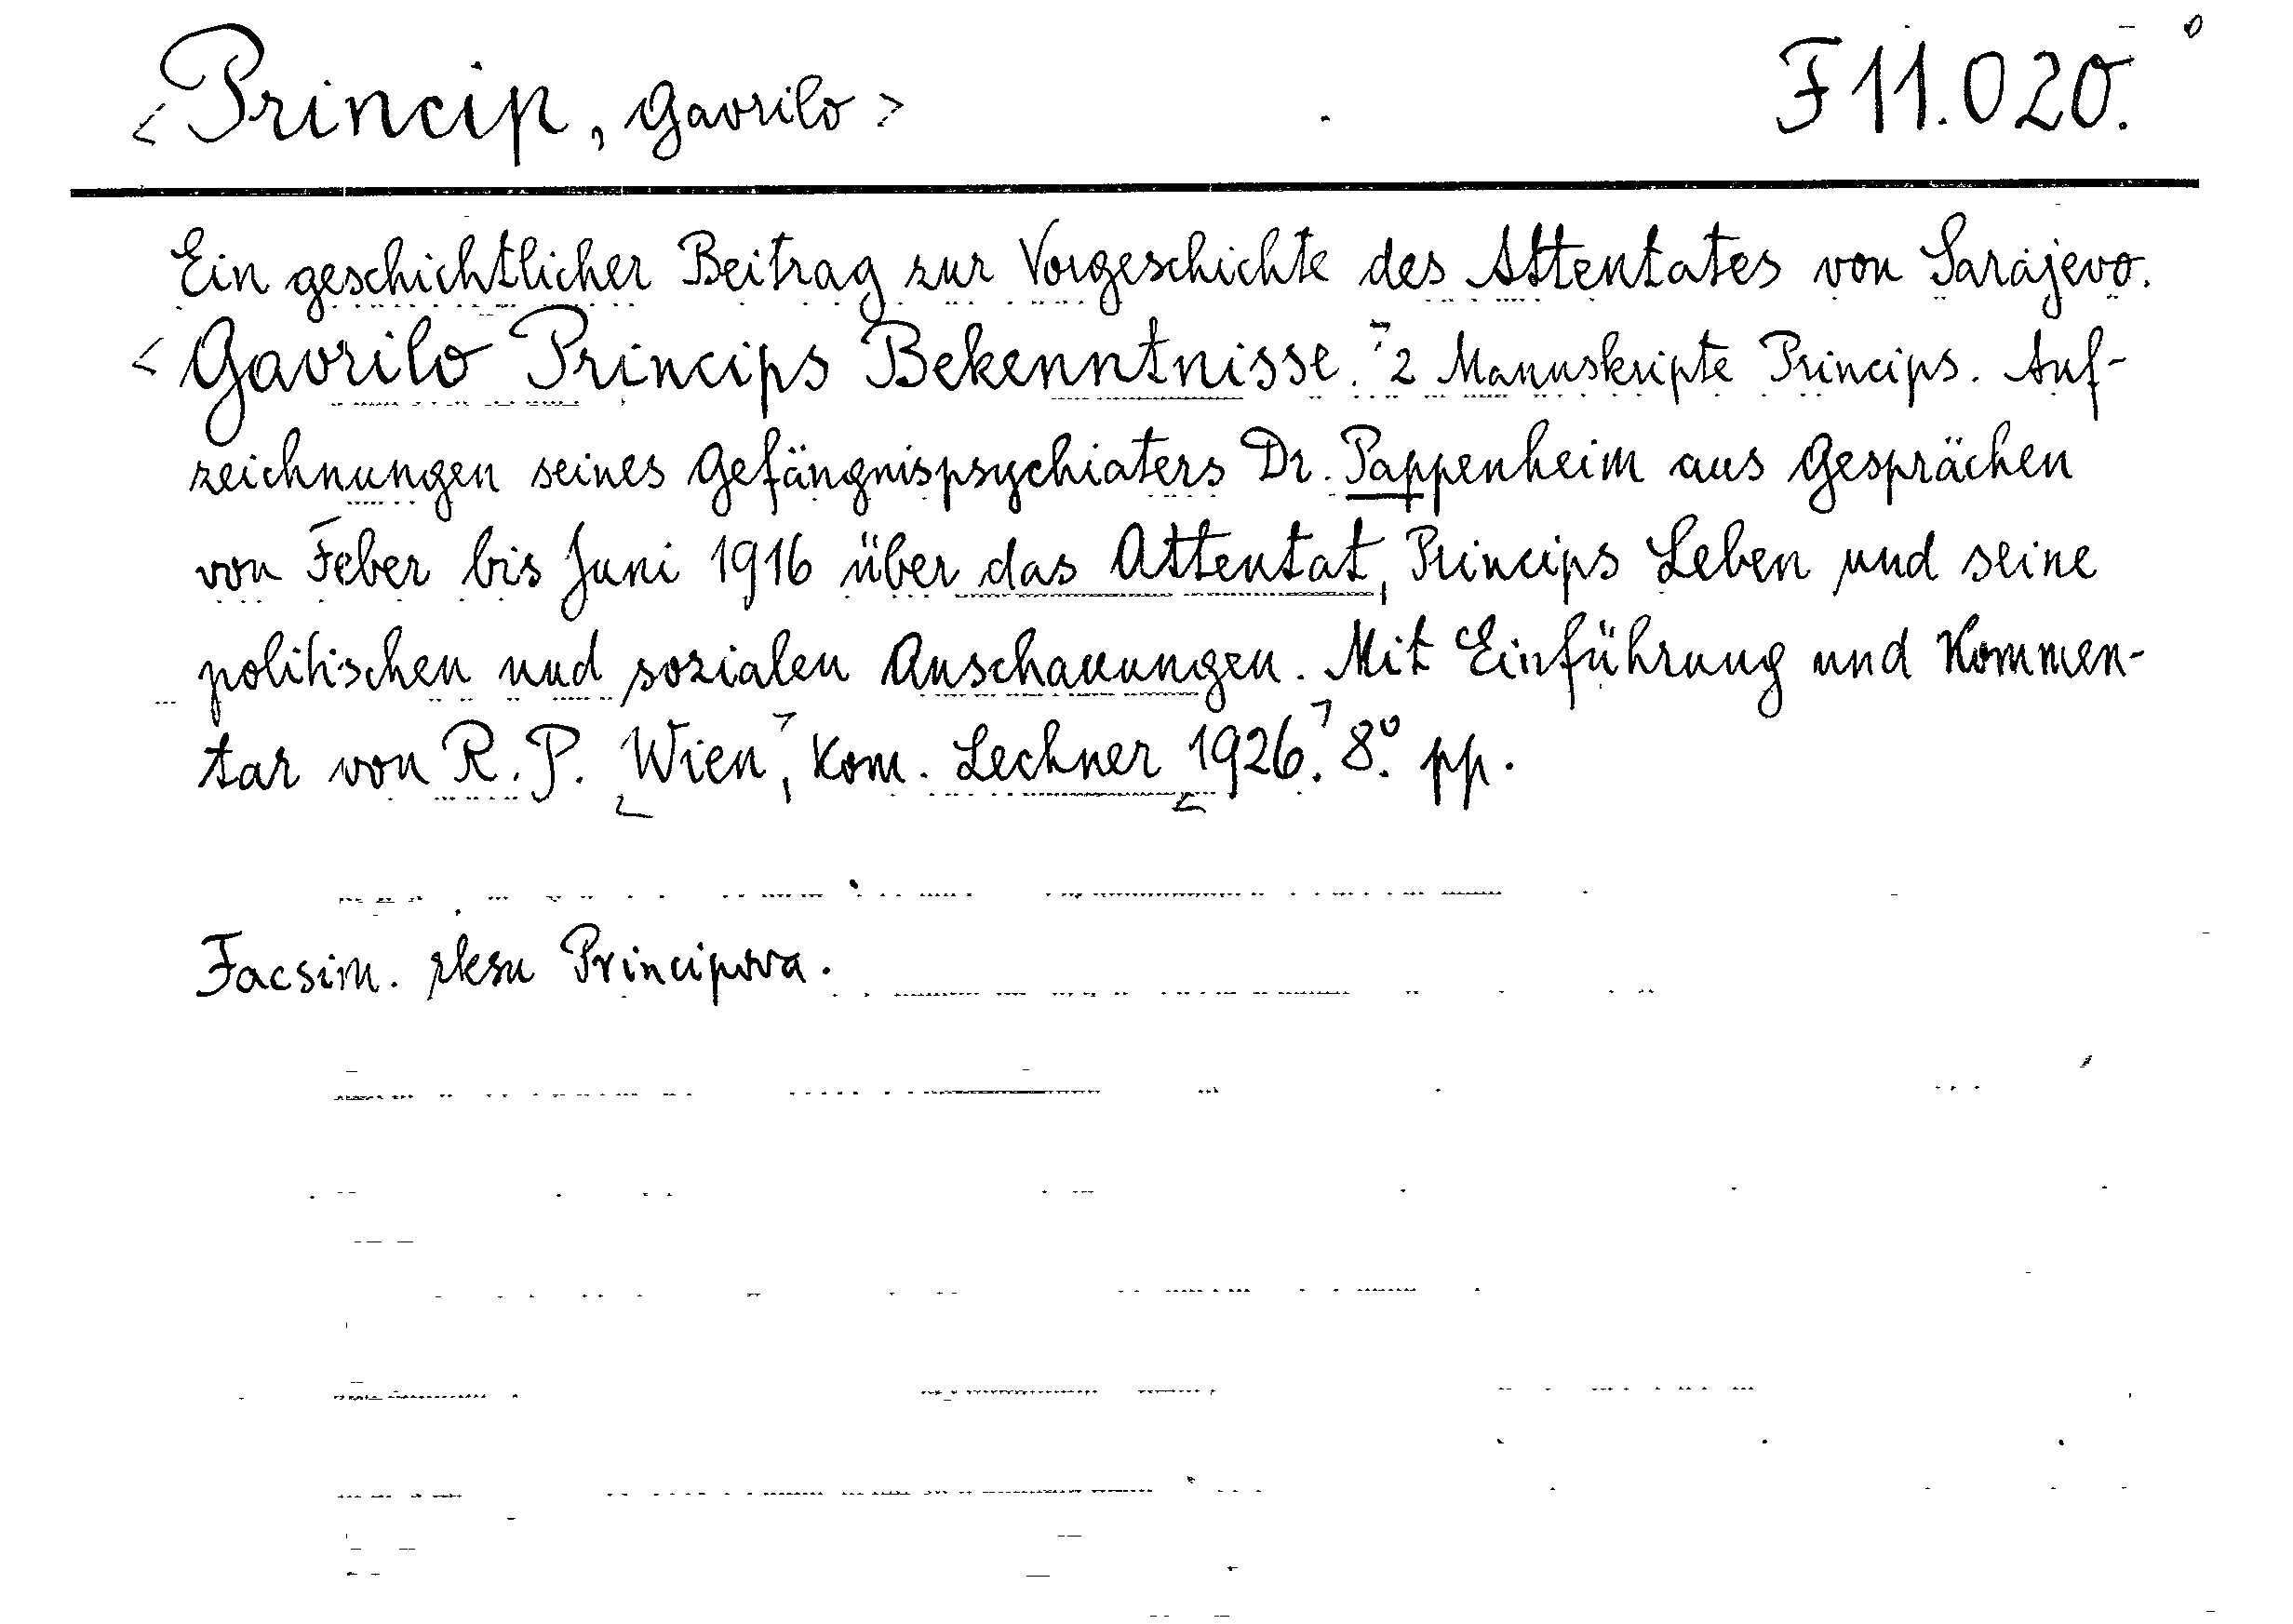 <Princip, Gavrilo> F 11.020.
Ein geschichtlicher Beitrag zur Vorgeschichte des Attentates von Sarajevo.
<Gavrilo Princips Bekenntnisse.> 2 Manuskripte Princips. Auf-
zeichnungen seines Gefängnispsychiaters Dr. Pappenheim aus Gesprächen
von Feber bis Juni 1916 über das Attentat, Princips Leben und seine
politischen und sozialen Anschauungen. Mit Einführung und Kommen-
tar von R. P. <Wien>, Kom. Lechner <1926.> 8.° pp.
Facsim. rksu Principova.